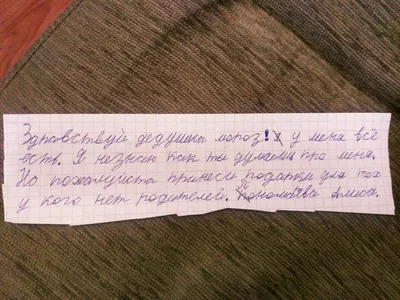 Здравствуй дедушка мороз! у меня всё
есть. Я незнаю как ты думаеш про меня.
Но пожалуйста принеси подарки для тех
у кого нет родителей. Пономарёва Алиса.